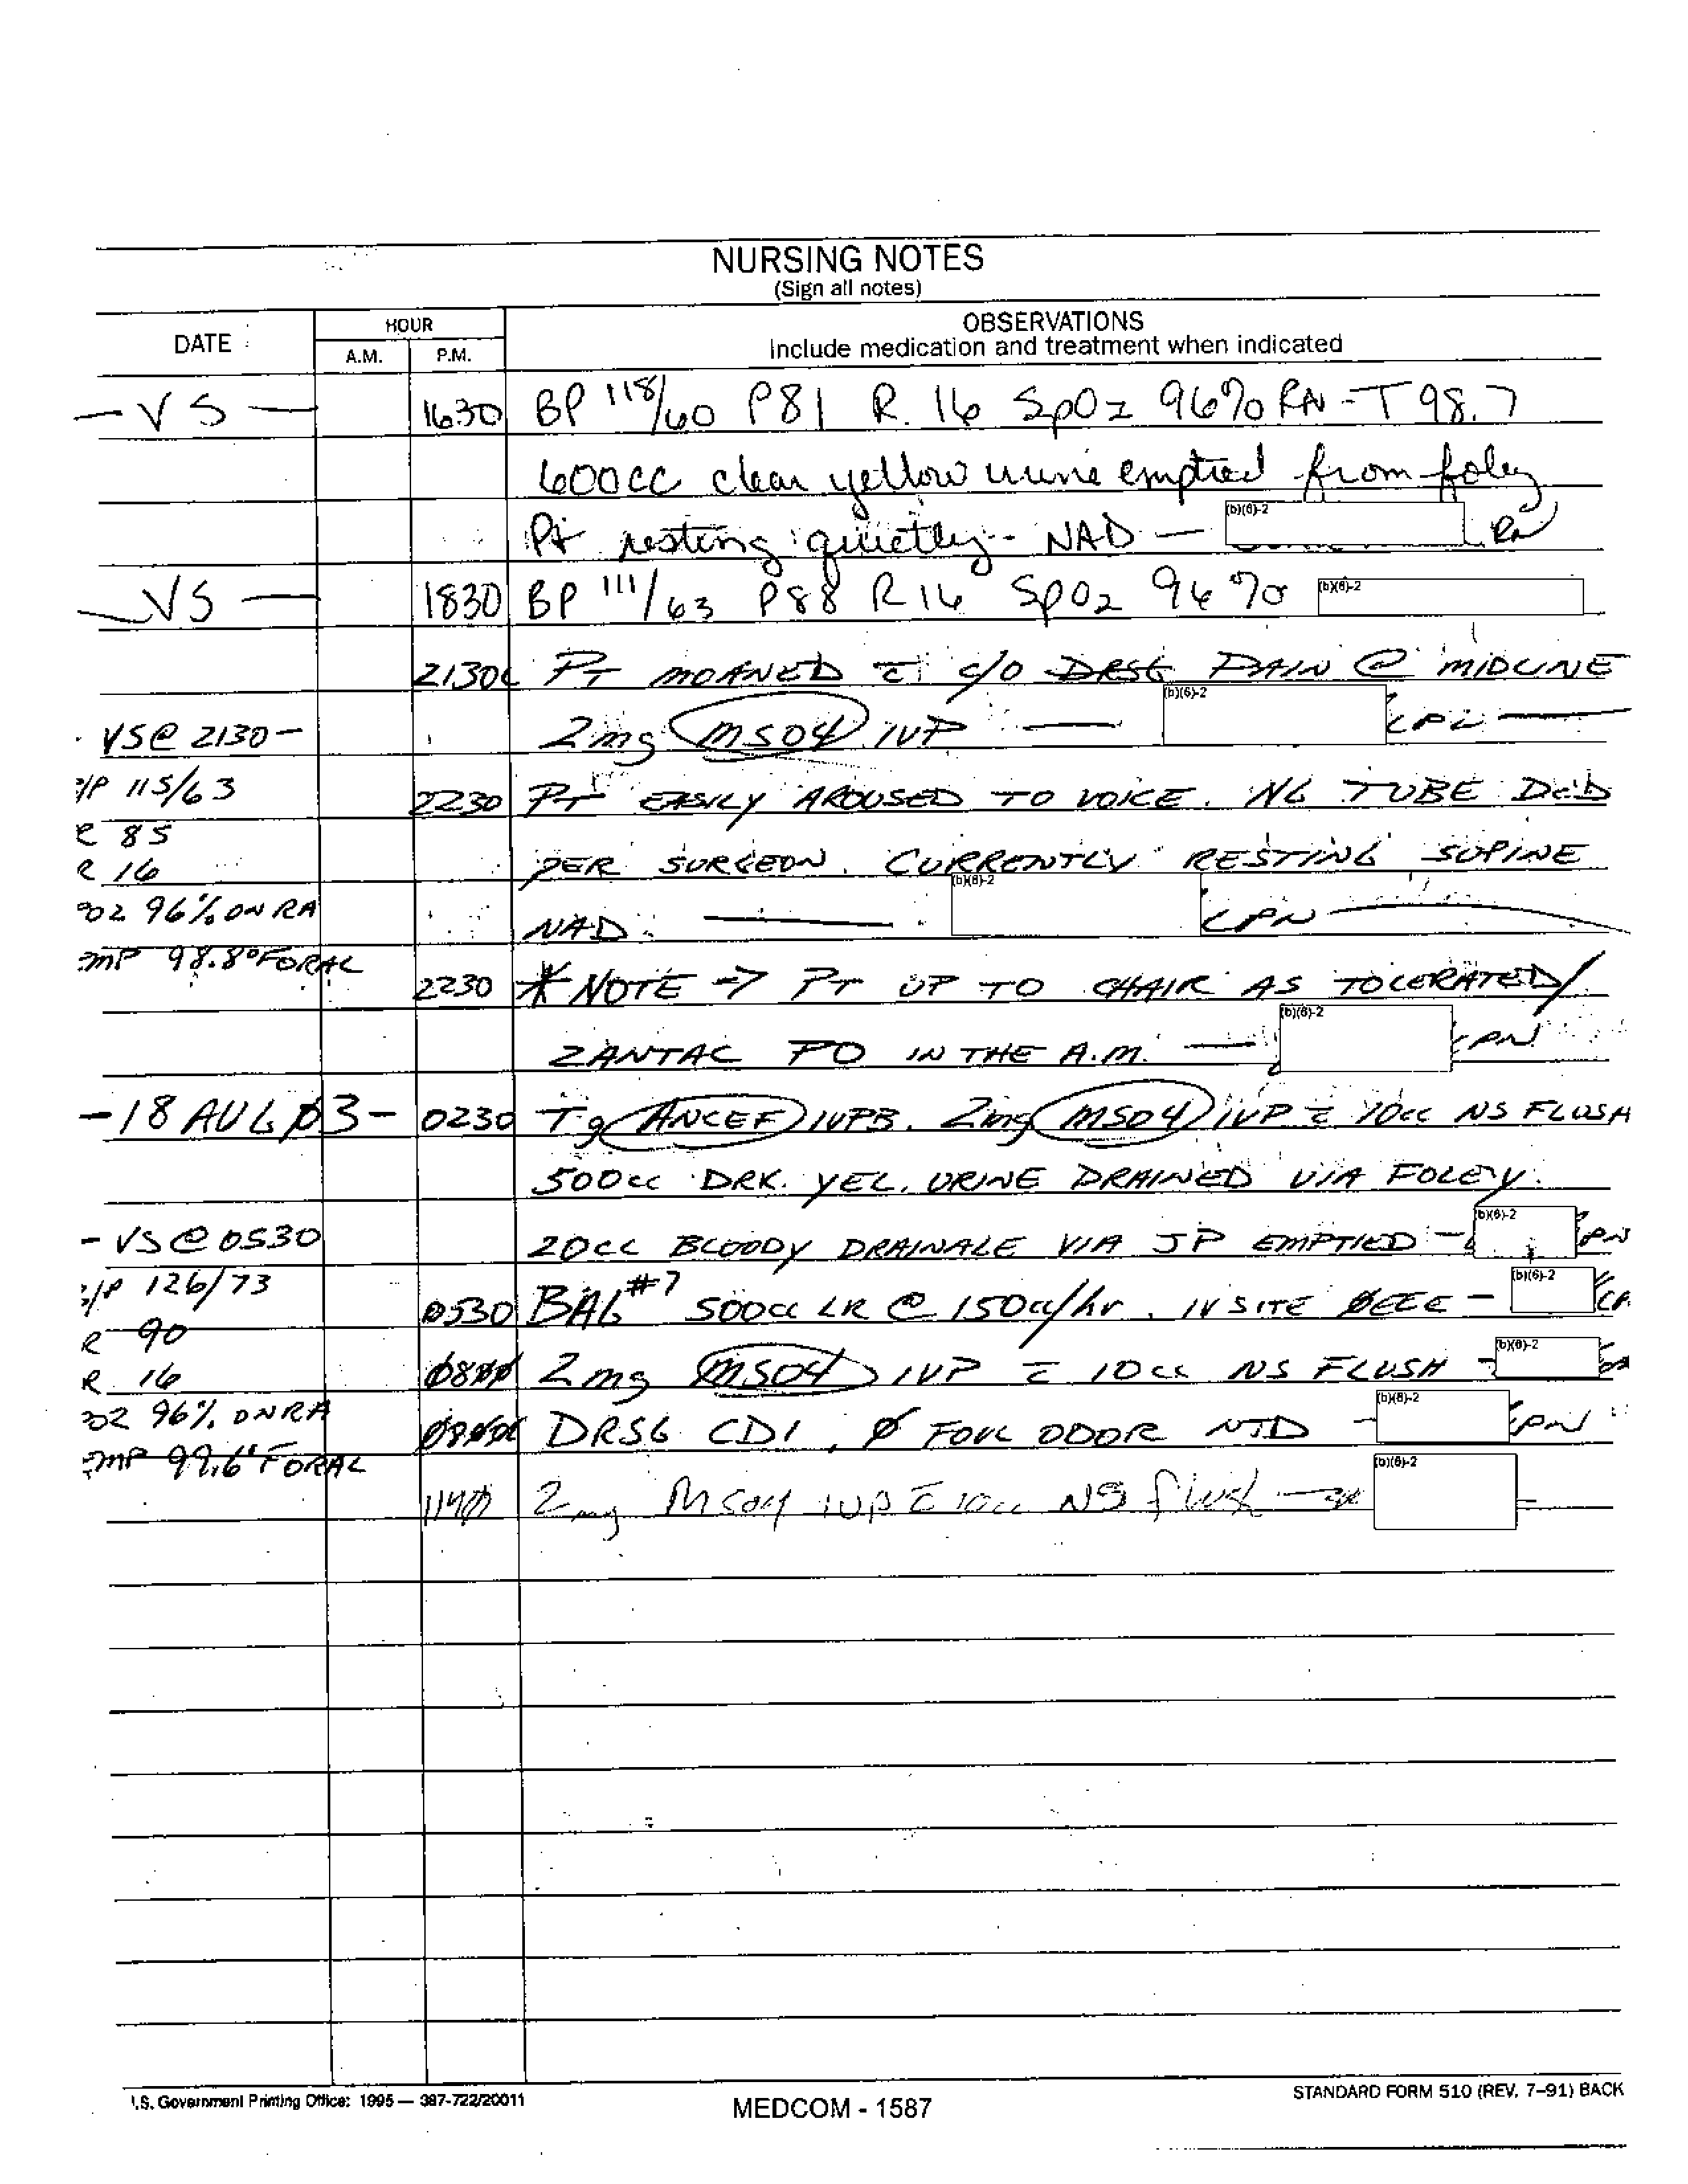 NURSING NOTES
(Sign all notes)
DATE HOUR OBSERVATIONS
A.M. P.M. Include medication and treatment when indicated
- VS - 1630 BP 118/60 P81 R. 16 SpO2 96% RA - T 98.7
600cc clear yellow urine emptied from foley
Pt resting quietly - NAD - (b)(6)-2 RN
- VS - 1830 BP 111/63 P88 R16 SpO2 96% (b)(6)-2
2130 PT MOANED c̄ c/o DRSG PAIN @ MIDLINE
VS@ 2130 - 2mg MSO4 IVP - (b)(6)-2
/P 115/63 2230 PT EASILY AROUSED TO VOICE. NG TUBE DC'D
85
R 16 PER SURGEON. CURRENTLY RESTING SUPINE
O2 96% ON RA NAD. - (b)(6)-2 LPN
EMP 98.8°F ORAL
2230 * NOTE → PT UP TO CHAIR AS TOLERATED/
ZANTAC PO IN THE A.M. - (b)(6)-2 LPN
- 18 AUG 03 - 0230 1g ANCEF IVPB. 2mg MSO4 IVP c̄ 10cc NS FLUSH
500cc DRK. YEL. URINE DRAINED VIA FOLEY.
- VS@0530 20cc BLOODY DRAINAGE VIA JP EMPTIED - (b)(6)-2 LPN
/P 126/73 0530 BAG #7 500cc LR @ 150cc/hr. IV SITE ØEEE - (b)(6)-2
90
R 16 0800 2mg MSO4 IVP c̄ 10cc NS FLUSH - (b)(6)-2
O2 96% ON RA DRSG CDI, Ø FOUL ODOR NTD - (b)(6)-2 LPN
EMP 99.6°F ORAL
1140 2mg MSO4 IVP c̄ 10cc NS flush - (b)(6)-2
U.S. Government Printing Office: 1995 — 387-722/20011
MEDCOM - 1587
STANDARD FORM 510 (REV. 7-91) BACK